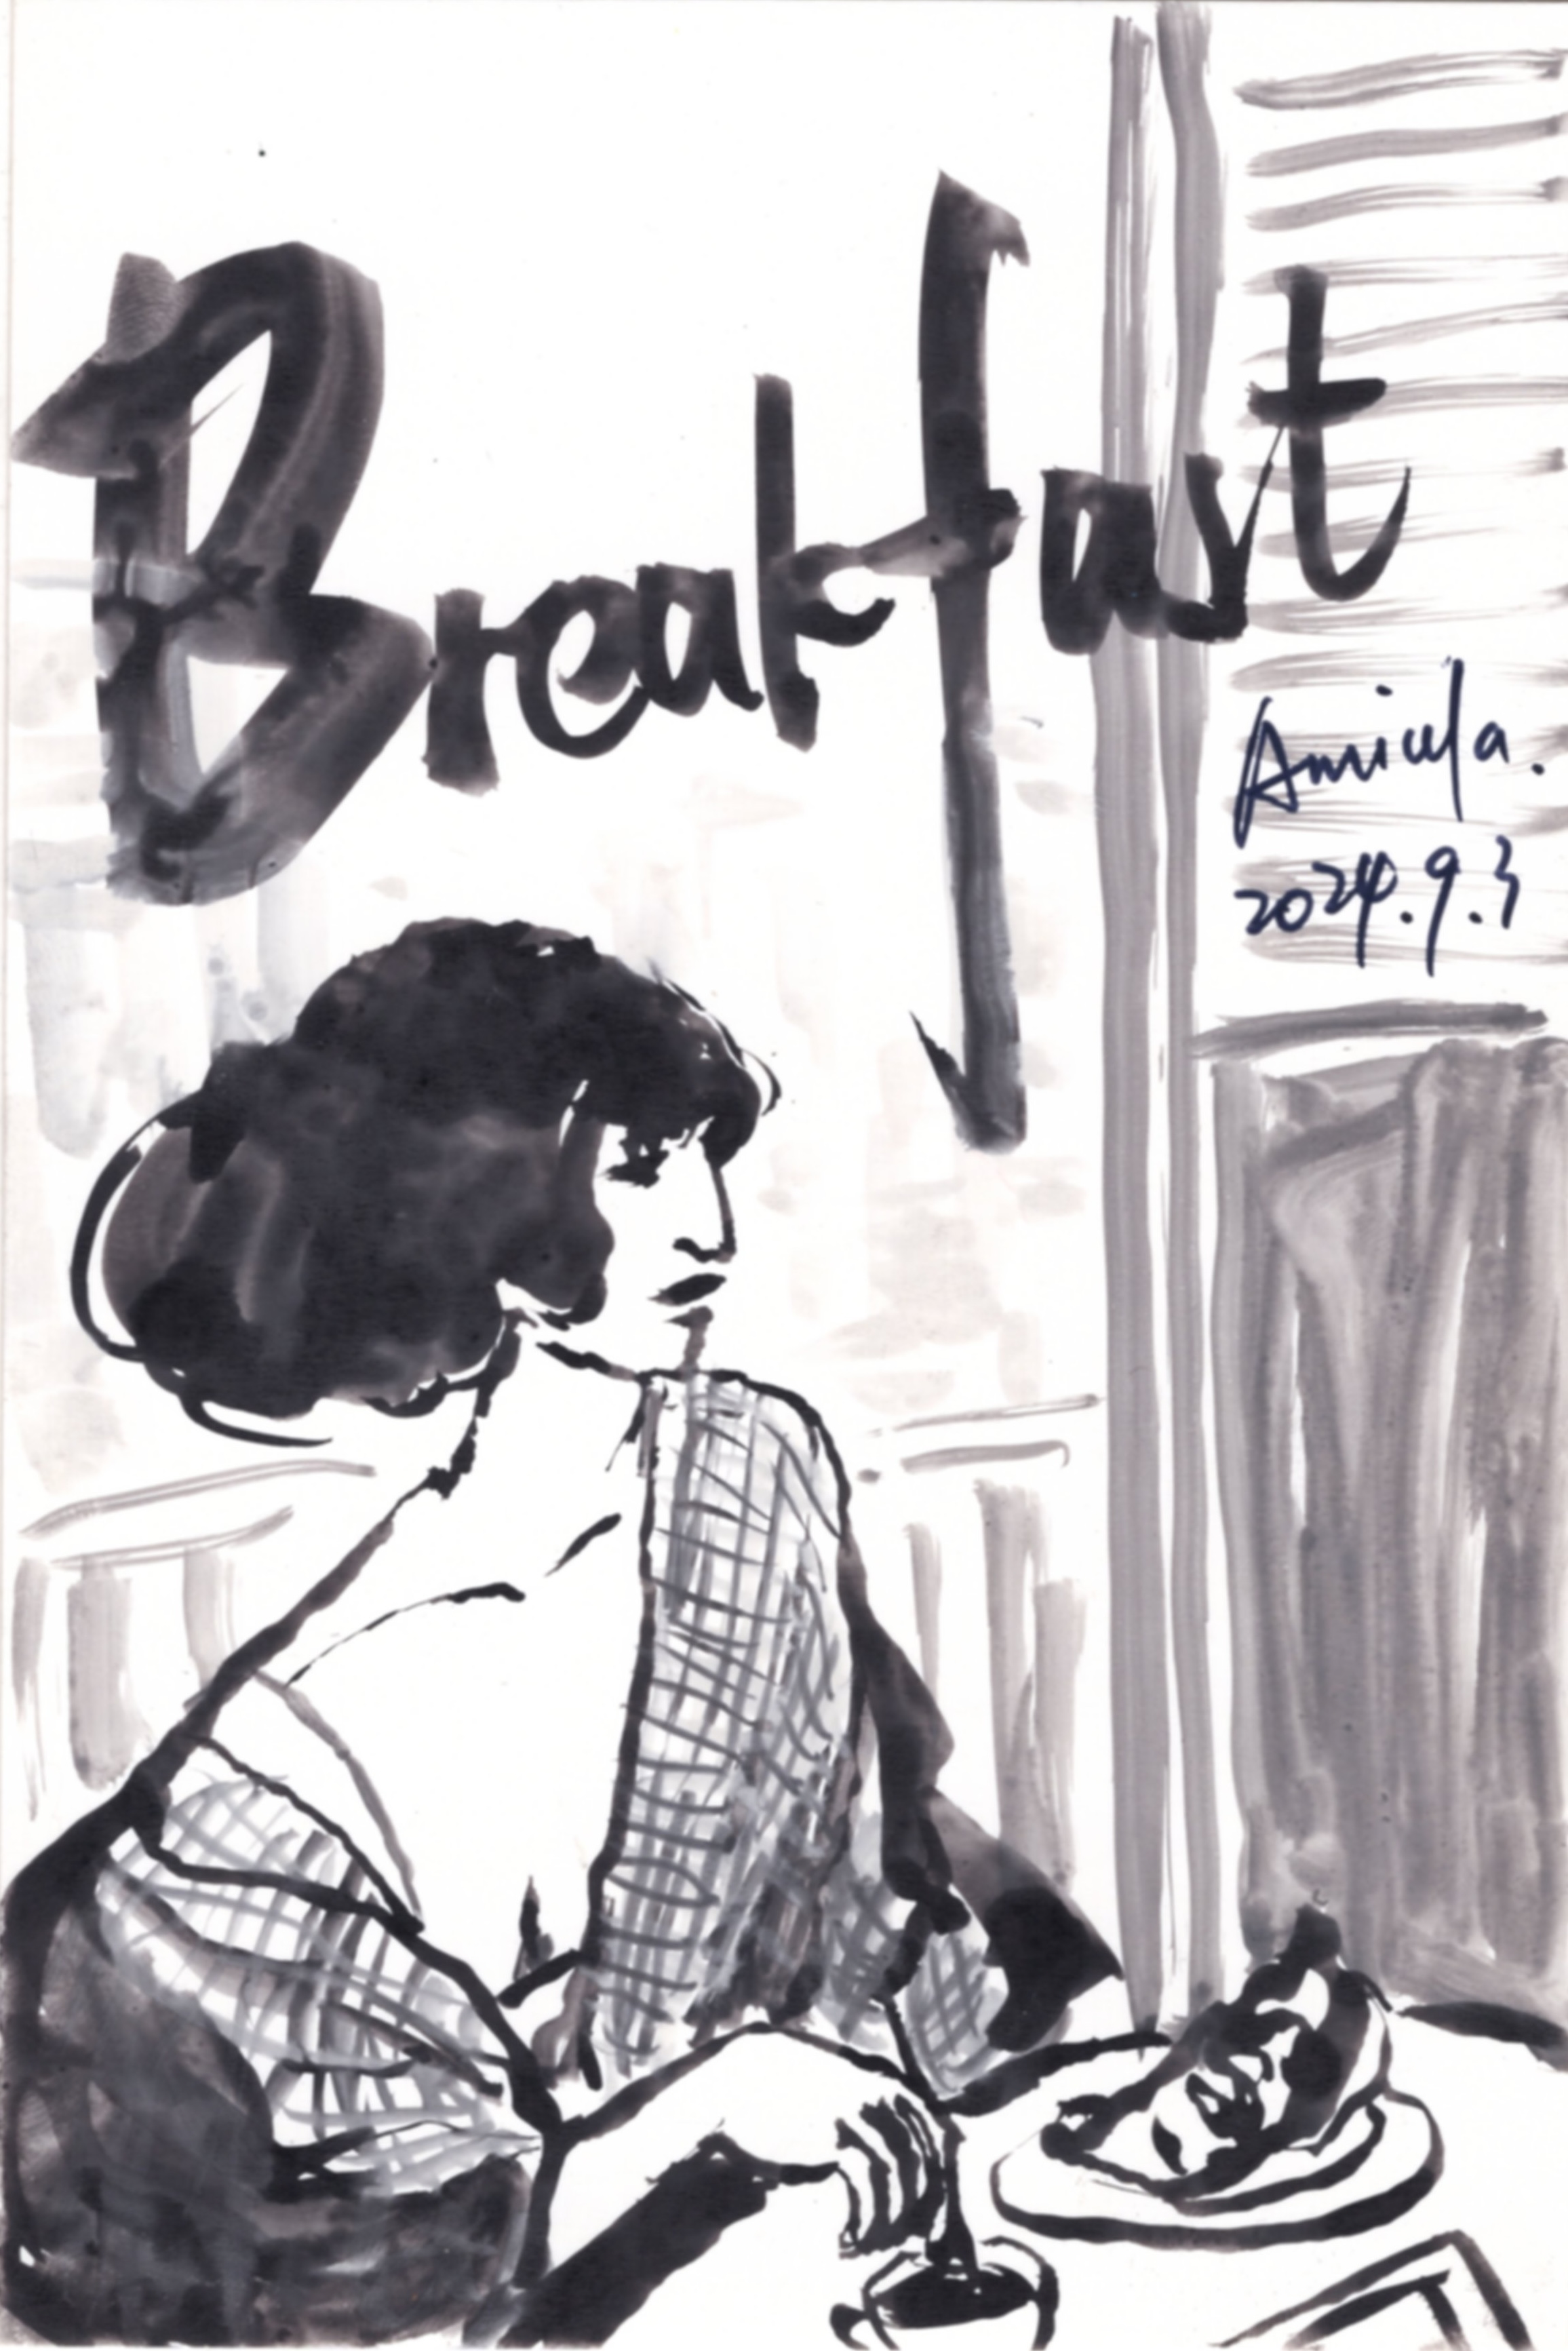 Breakfast
Amicula.
2024.9.3